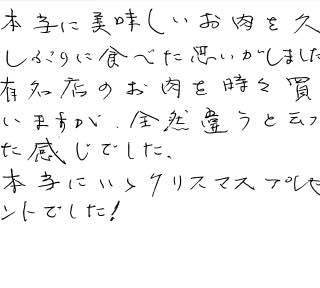 本当に美味しいお肉を久
しぶりに食べた思いがしました
有名店のお肉を時々買
いますが、全然違うと云っ
た感じでした。
本当にいいクリスマスプレゼ
ントでした!